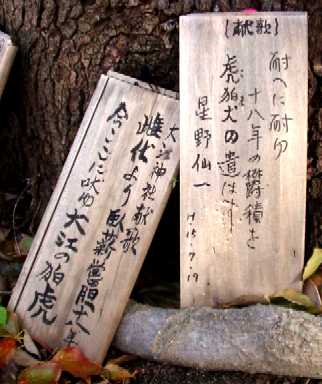 〔献歌〕
耐へに耐え
十八年の欝積を
虎狛犬の遺は
星野仙一
H.15.7.19
大江神社献歌
雌伏より臥薪嘗胆十八年
今ここに吠え大江の狛虎